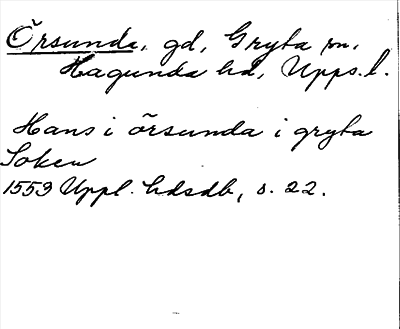 Örsunda, gd, Gryta sn,
Hagunda hd, Upps. l.
Hans i örsunda i gryta
Soken
1553 Uppl. hdsdb, s. 22.